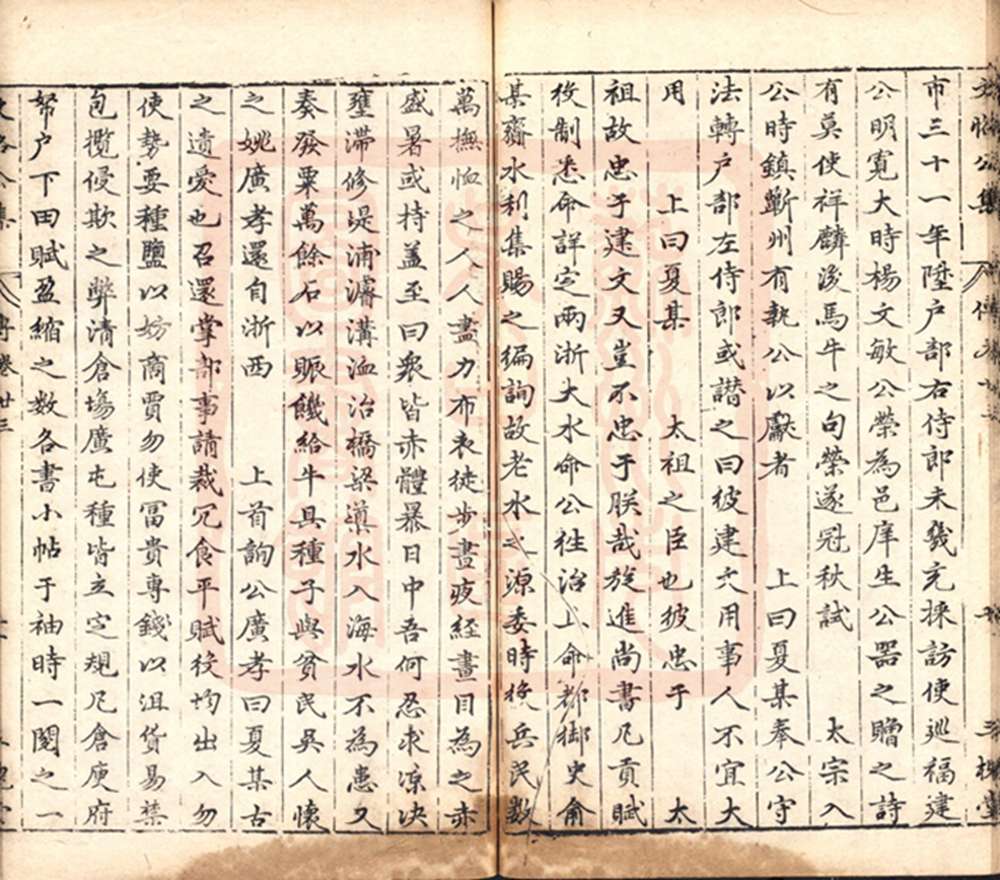 市三十一年陞戶部右侍郎未幾充採訪使巡福建
公明寬大時楊文敏公榮為邑庠生公器之贈之詩
有莫使祥麟後馬牛之句榮遂冠秋試 太宗入
公時鎮蘄州有執公以獻者 上曰夏某奉公守
法轉戶部左侍郎或譖之曰彼建文用事人不宜大
用 上曰夏某 太祖之臣也彼忠于 太
祖故忠于建文又豈不忠于朕哉旋進尚書凡貢賦
枚制悉命詳定兩浙大水命公往治上命都御史俞
某齎水利集賜之編詢故老水之源委時役兵民數
萬撫恤之人人盡力布衣徒步晝夜經畫目為之赤
盛暑或持蓋至曰衆皆赤體暴日中吾何忍求凉决
壅滯修堤浦濬溝洫治橋梁導水入海水不為患又
奏發粟萬餘石以賑饑給牛具種子與貧民吳人懷
之姚廣孝還自浙西 上首詢公廣孝曰夏某古
之遺愛也召還掌部事請裁冗食平賦役均出入勿
使勢要種鹽以妨商賈勿使冨貴專錢以沮貨易禁
包攬侵欺之弊清倉塲廣屯種皆立定規凡倉庾府
帑户下田賦盈縮之数各書小帖于袖時一閱之一